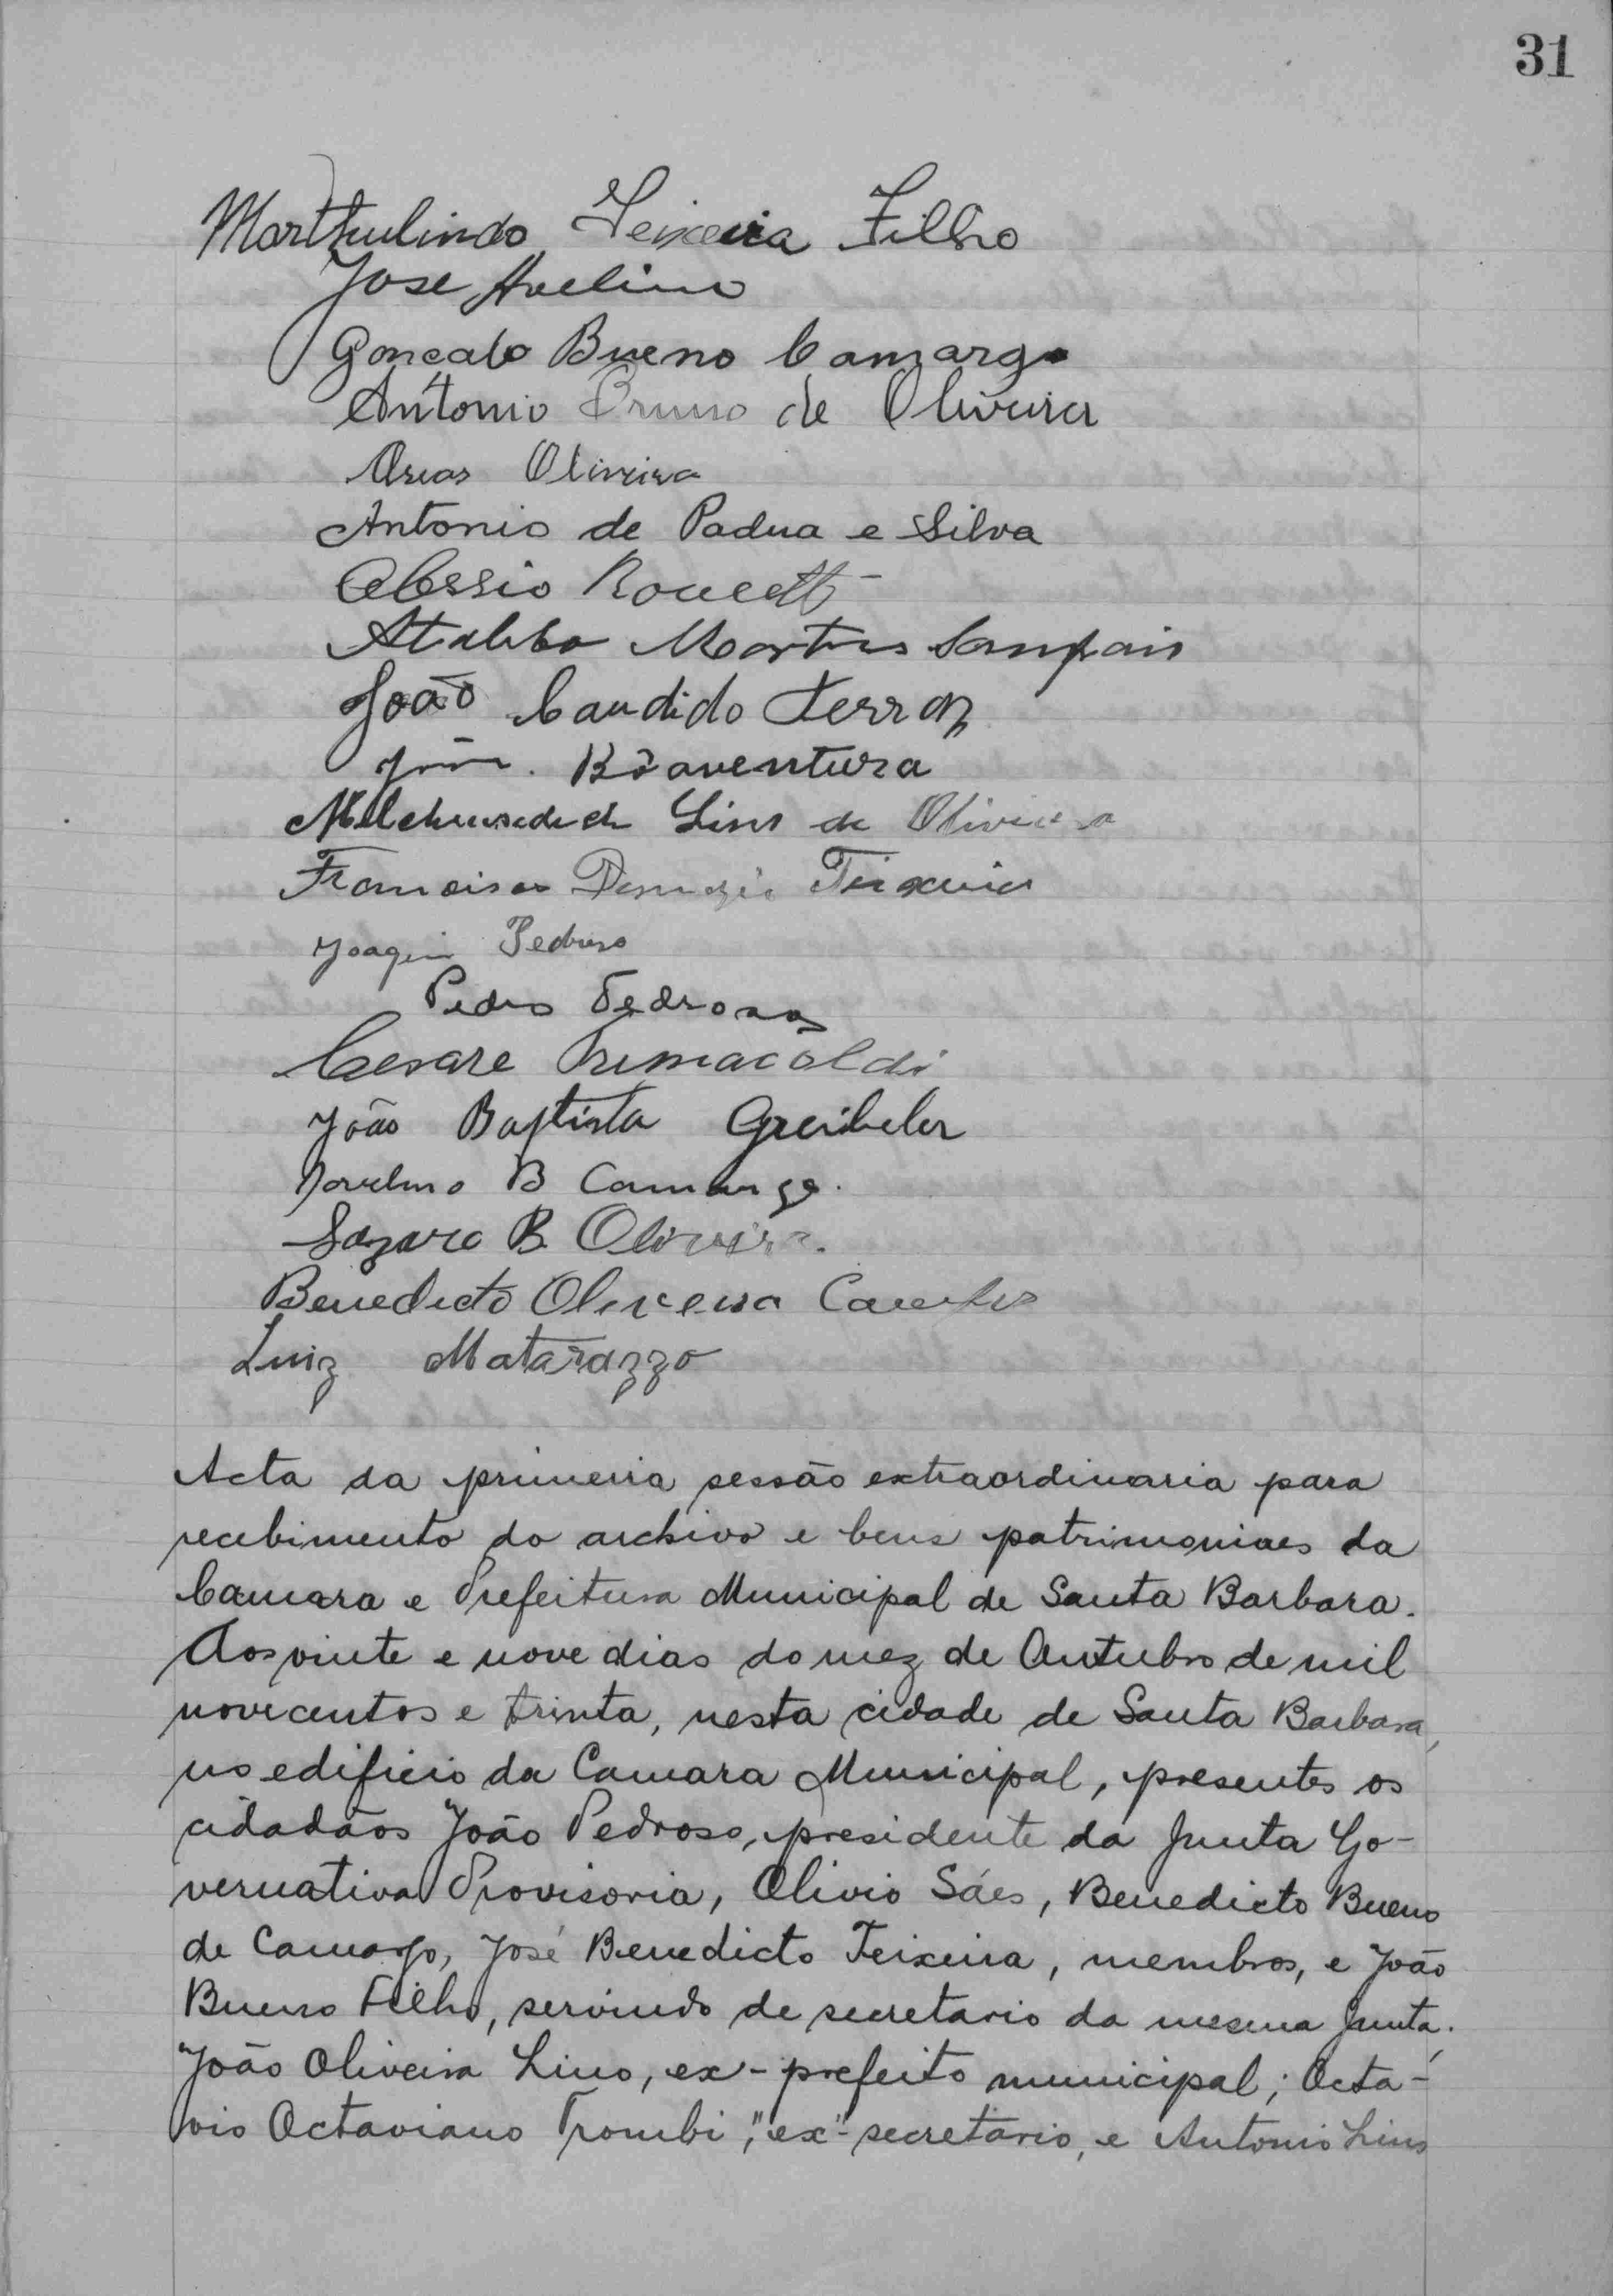 31
Teixeira Filho
Jose Avelino
Gonçalo Bueno Camargo
Antonio Bruno de Oliveira
Oliveira
Antonio de Padua e Silva
Alessio
Ataliba Martins Sampaio
João Candido Ferraz
Boaventura
Lins de Oliveira
Francisco Teixeira
Joaquim Pedroso
Pedro Pedroso
Cesare
João Baptista Greibeler
B Camargo.
Lazaro B. Oliveira.
Benedicto Oliveira
Luiz Matarazzo
Acta da primeira sessão extraordinaria para
recebimento do archivo e bens patrimoniaes da
Camara e Prefeitura Municipal de Santa Barbara.
Aos vinte e nove dias do mez de Outubro de mil
novecentos e trinta, nesta cidade de Santa Barbara,
no edificio da Camara Municipal, presentes os
cidadãos João Pedroso, presidente da Junta Go-
vernativa Provisoria, Olivio Sáes, Benedicto Bueno
de Camargo, José Benedicto Teixeira, membros, e João
Bueno Filho, servindo de secretario da mesma Junta;
João Oliveira Lino, ex-prefeito municipal; Octa-
vio Octaviano Trombi, "ex"-secretario, e Antonio Lins